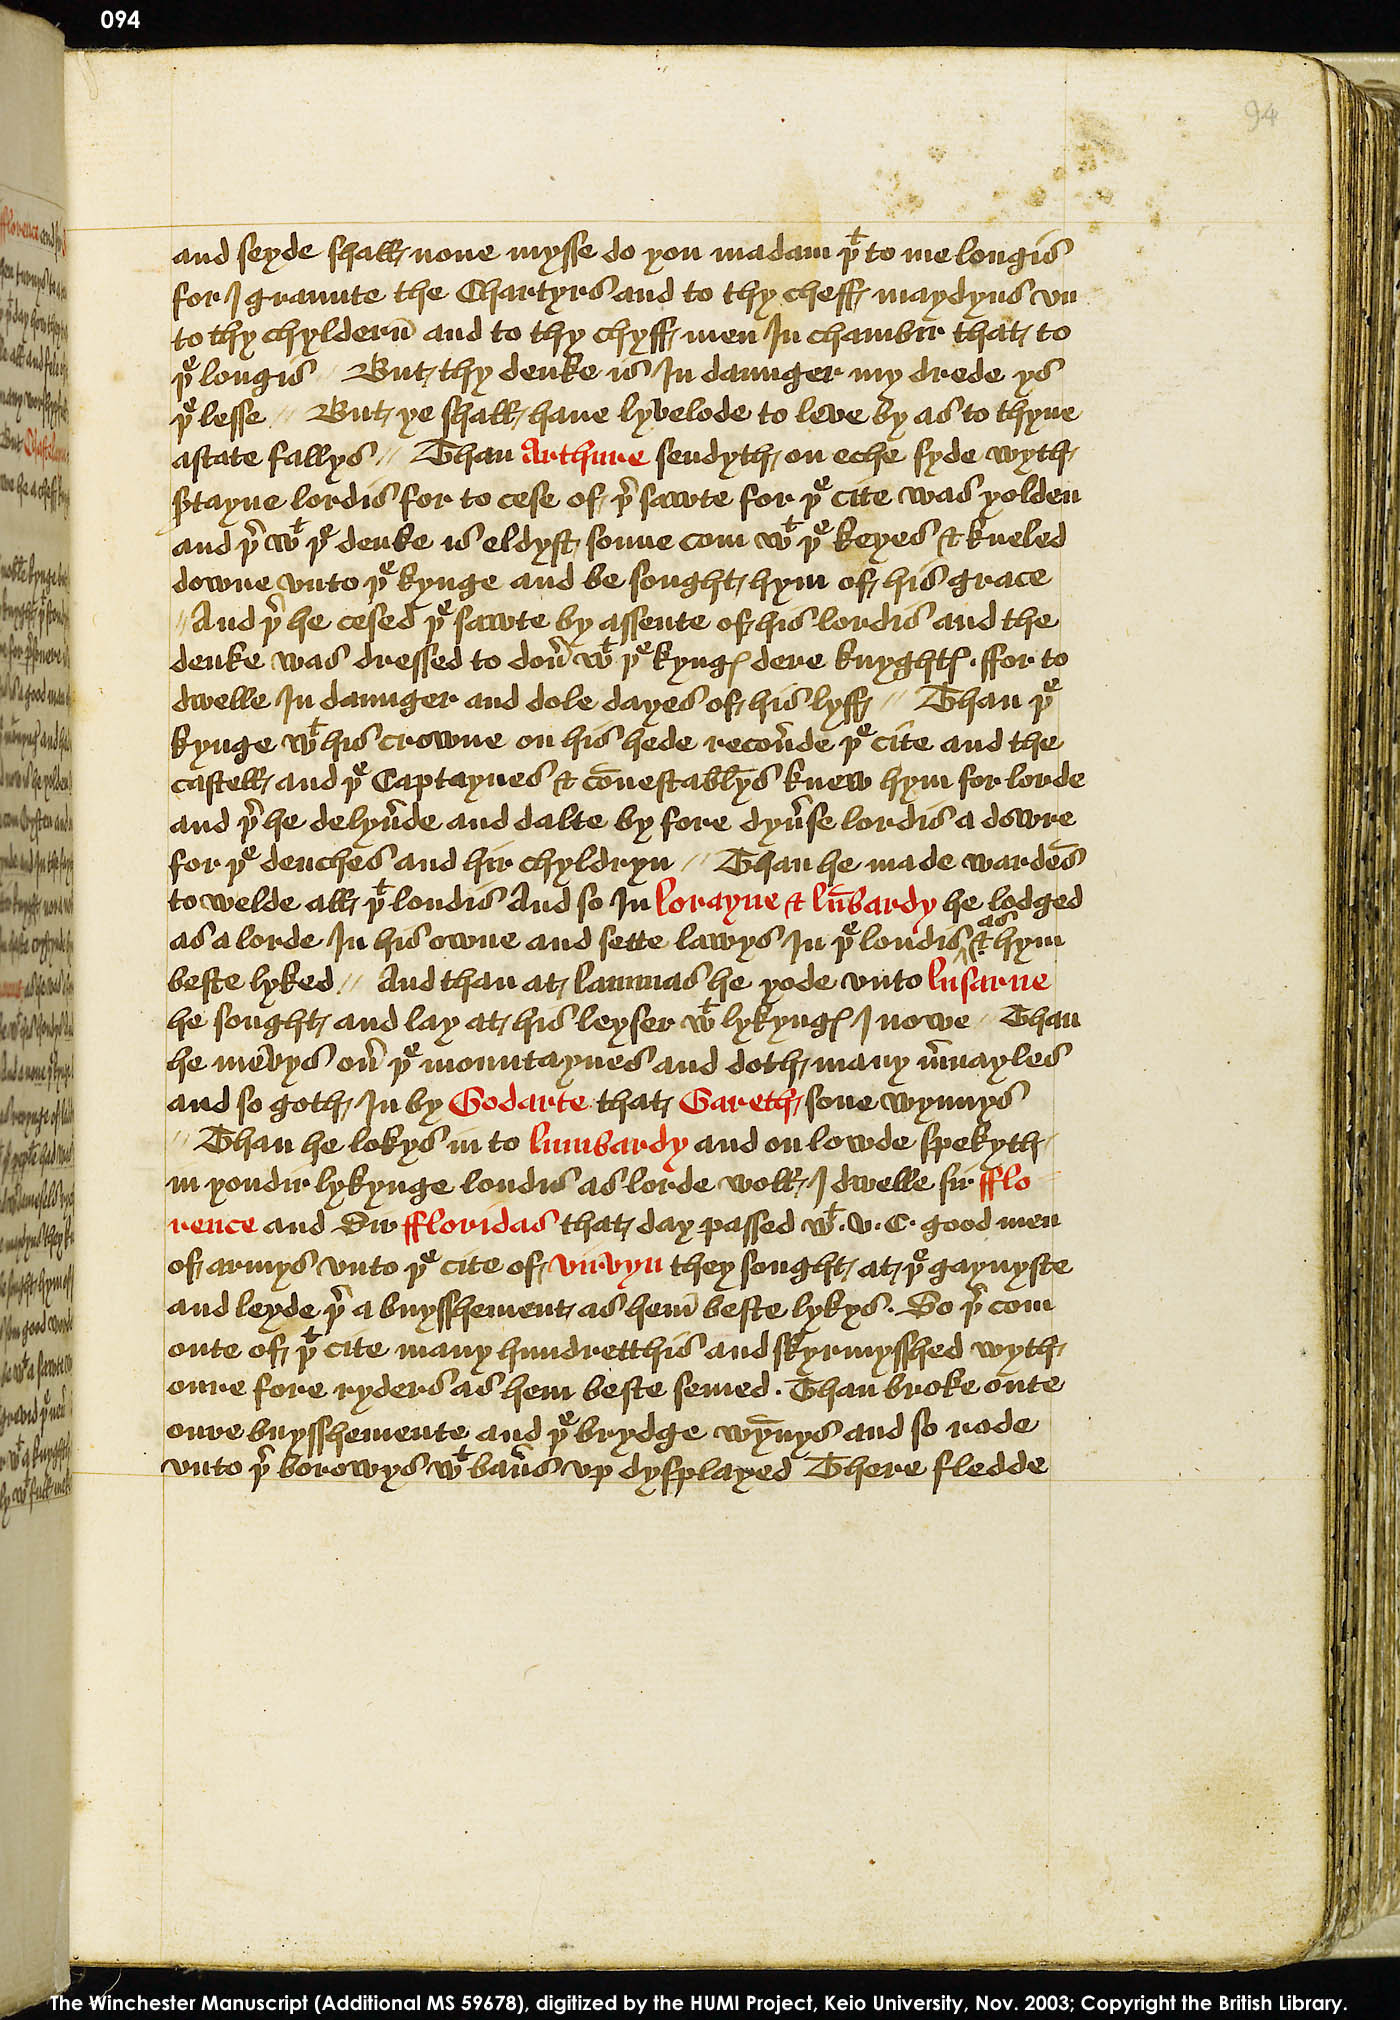 094
94
and seyde shall none mysse do you madam þᵗ to me longis
for I graunte the Chartyrs and to thy cheff maydyns vn
to thy chylderū and to thy chyff men In chambir that to
þᵉ longis // But thy deuke is In daunger my drede ys
þᵉ lesse // But ye shall haue lyvelode to leve by as to thyne
astate fallys // Than Arthure sendyth on eche syde wyth
sstayne lordis for to cese of þʳ sawte for þᵉ cite was yolden
and þʳ wᵗ þᵉ deuke is eldyst sonne com wᵗ þᵉ keyes & kneled
downe vnto þᵉ kynge and be sought hym of his grace
// And þʳ he cesed þᵉ sawte by assente of his lordis and the
deuke was dressed to doũ wᵗ þᵉ kyngꝭ dere knyghtꝭ . ffor to
dwelle In daunger and dole dayes of his lyff // Than þᵉ
kynge wᵗ his crowne on his hede recoũde þᵉ cite and the
castell and þᵉ Captaynes & cōnestablys knew hym for lorde
and þʳ he delyũde and dalte by fore dyũse lordis a dowre
for þᵉ duches and hir chyldryn // Than he made wardēs
to welde all þᵗ londis And so In Lorayne & Lūbardy he lodged
as a lorde In his owne and sette lawys In þᵉ londis as hym
beste lyked // And than at lammas he yode vnto Lusarne
he sought and lay at his leyser wᵗ lykyngꝭ I nowe // Than
he mevys oũ þᵉ mountaynes and doth many m̃uayles
and so goth In by Godarte that Gareth sone wynnys
// Than he lokys in to Lumbardy and on lowde spekyth
in yondir lykynge londis as lorde woll I dwelle sir fflo
rence and Sir ffloridas that day passed wᵗ .v. C. good men
of armys vnto þᵉ cite of virvyn they sought at þᵉ gaynyste
and leyde þʳ a buysshement as hem̄ beste lykys . So þʳ com
oute of þᵗ cite many hundretthis and skyrmysshed wyth
oure fore ryders as hem beste semed . Than broke oute
oure buysshemente and þᵉ brydge wȳnys and so rode
vnto þʳ borowys wᵗ bañs vp dysplayed There fledde
The Winchester Manuscript (Additional MS 59678), digitized by the HUMI Project, Keio University, Nov. 2003; Copyright the British Library.